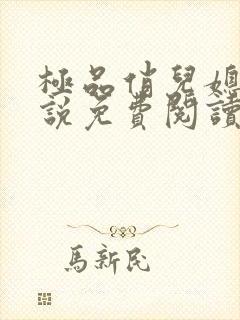 極品俏兒媳
說免費閱讀
馬新民